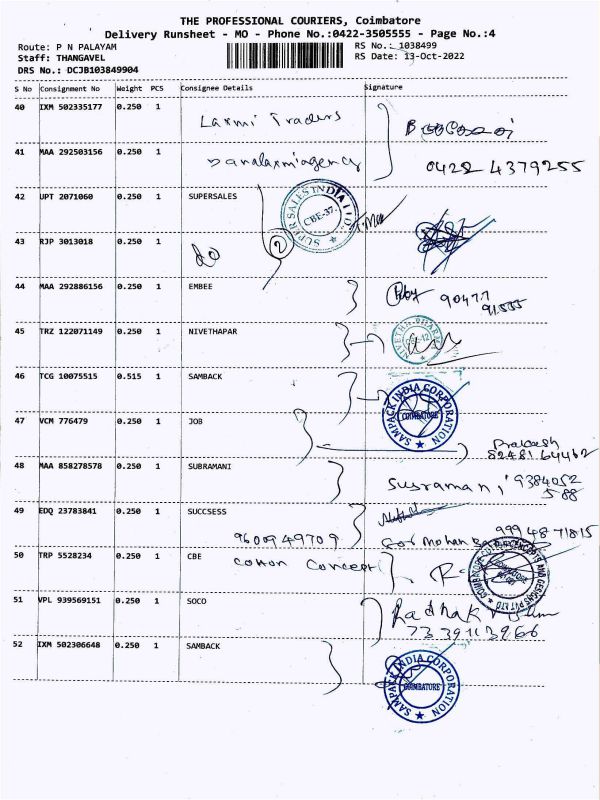 THE PROFESSIONAL COURIERS, Coimbatore
Delivery Runsheet - MO - Phone No.:0422-3505555 - Page No.:4
Route: P N PALAYAM
RS No.: 1038499
Staff: THANGAVEL
RS Date: 13-Oct-2022
DRS No.: DCJB103849904
S No Consignment No Weight PCS Consignee Details Signature
40 IXM 502335177 0.250 1 Laxmi Traders
41 MAA 292503156 0.250 1 Danalaxmi agency 0422 4379255
42 UPT 2071060 0.250 1 SUPERSALES
SUPER SALES INDIA LTD. CBE-37.
43 RJP 3013018 0.250 1 do 2
44 MAA 292886156 0.250 1 EMBEE 90477
91555
45 TRZ 122071149 0.250 1 NIVETHAPAR
46 TCG 10075515 0.515 1 SAMBACK
SAMPACK INDIA CORPORATION COIMBATORE
47 VCM 776479 0.250 1 JOB
Prakash
8248164462
48 MAA 858278578 0.250 1 SUBRAMANI Susramani 9384052
588
49 EDQ 23783841 0.250 1 SUCCSESS
9600949709 99948 71815
50 TRP 5528234 0.250 1 CBE Cotton Concept
51 VPL 939569151 0.250 1 SOCO
7339113966
52 IXM 502306648 0.250 1 SAMBACK
SAMPACK INDIA CORPORATION COIMBATORE